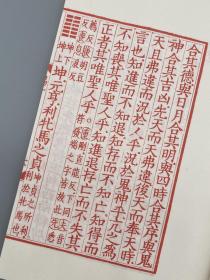 合其德與日月合其明與四時合其序與鬼
神合其吉凶先天而天弗違後天而奉天時
天且弗違而況於人乎況於鬼神乎亢之爲
言也知進而不知退知存而不知亡知得而
不知喪其唯聖人乎知進退存亡而不失其
正者其唯聖人乎
坤下坤上 坤元亨利牝馬之貞 坤貞之所利利於牝馬也